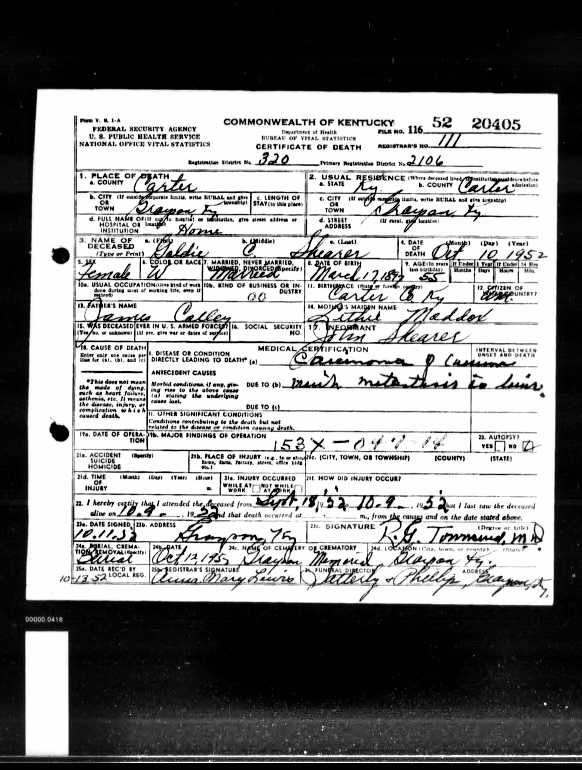 Form V. S. 1-A
FEDERAL SECURITY AGENCY
U. S. PUBLIC HEALTH SERVICE
NATIONAL OFFICE VITAL STATISTICS
COMMONWEALTH OF KENTUCKY
Department of Health
BUREAU OF VITAL STATISTICS
CERTIFICATE OF DEATH
FILE NO. 116 52 20405
REGISTRAR'S NO. 111
Registration District No. 320 Primary Registration District No. 2106
1. PLACE OF DEATH
a. COUNTY Carter
2. USUAL RESIDENCE (Where deceased lived.
a. STATE Ky b. COUNTY Carter
b. CITY (If outside corporate limits, write RURAL and give township)
OR TOWN Grayson Ky
c. LENGTH OF STAY (in this place)
c. CITY
OR TOWN Grayson Ky
d. FULL NAME OF (If not in hospital or institution, give street address or location)
HOSPITAL OR INSTITUTION Home
d. STREET ADDRESS (If rural, give location)
3. NAME OF DECEASED (Type or Print)
a. (First) Goldie b. (Middle) C c. (Last) Shearer
4. DATE OF DEATH (Month) (Day) (Year) Oct 10 1952
5. SEX Female
6. COLOR OR RACE W
7. MARRIED, NEVER MARRIED, WIDOWED, DIVORCED (Specify) Married
8. DATE OF BIRTH March 17 1897
9. AGE (In years last birthday) 55
If Under 1 Months Days If Under 24 Hrs. Hours Min.
10a. USUAL OCCUPATION (Give kind of work done during most of working life, even if retired)
10b. KIND OF BUSINESS OR INDUSTRY
11. BIRTHPLACE (State or foreign country) Carter Co. Ky
12. CITIZEN OF COUNTRY?
13. FATHER'S NAME James
14. MOTHER'S MAIDEN NAME Maddox
15. WAS DECEASED EVER IN U. S. ARMED FORCES?
(Yes, no, or unknown) (If yes, give war or dates of service)
16. SOCIAL SECURITY NO.
17. INFORMANT John Shearer
18. CAUSE OF DEATH
Enter only one cause per line for (a), (b), and (c)
MEDICAL CERTIFICATION
INTERVAL BETWEEN ONSET AND DEATH
I. DISEASE OR CONDITION DIRECTLY LEADING TO DEATH* (a) Carcinoma of
*This does not mean the mode of dying, such as heart failure, asthenia, etc. It means the disease, injury, or complication which caused death.
ANTECEDENT CAUSES
Morbid conditions, if any, giving rise to the above cause (a) stating the underlying cause last.
DUE TO (b) metastasis to liver
DUE TO (c)
II. OTHER SIGNIFICANT CONDITIONS
Conditions contributing to the death but not related to the disease or condition causing death.
19a. DATE OF OPERATION
19b. MAJOR FINDINGS OF OPERATION
153X
20. AUTOPSY?
YES NO
21a. ACCIDENT SUICIDE HOMICIDE (Specify)
21b. PLACE OF INJURY
21c. (CITY, TOWN, OR TOWNSHIP) (COUNTY) (STATE)
21d. TIME OF INJURY (Month) (Day) (Year) (Hour) m.
21e. INJURY OCCURRED
WHILE AT WORK NOT WHILE AT WORK
21f. HOW DID INJURY OCCUR?
22. I hereby certify that I attended the deceased from Sept. 18, 52 10-9-, 1952 that I last saw the deceased
alive on 10-9-, 1952 and that death occurred at m., from the causes and on the date stated above.
23a. DATE SIGNED 10-11-52
23b. ADDRESS Grayson, Ky
23c. SIGNATURE (Degree or title) Townsend, M.D.
24a. BURIAL, CREMATION, REMOVAL (Specify) Burial
24b. DATE Oct 12 1952
24c. NAME OF CEMETERY OR CREMATORY Grayson Memorial
24d. LOCATION (City, town, or county) (State) Grayson Ky.
25a. DATE REC'D BY LOCAL REG. 10-13-52
25b. REGISTRAR'S SIGNATURE Mary Lewis
FUNERAL DIRECTOR ADDRESS Grayson, Ky.
00000.0418